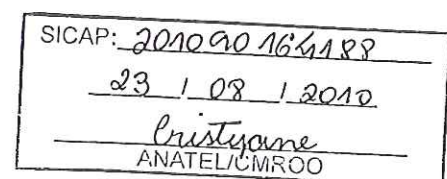 SICAP: 201090164188
23 / 08 / 2010
Cristyane
ANATEL/CMROO